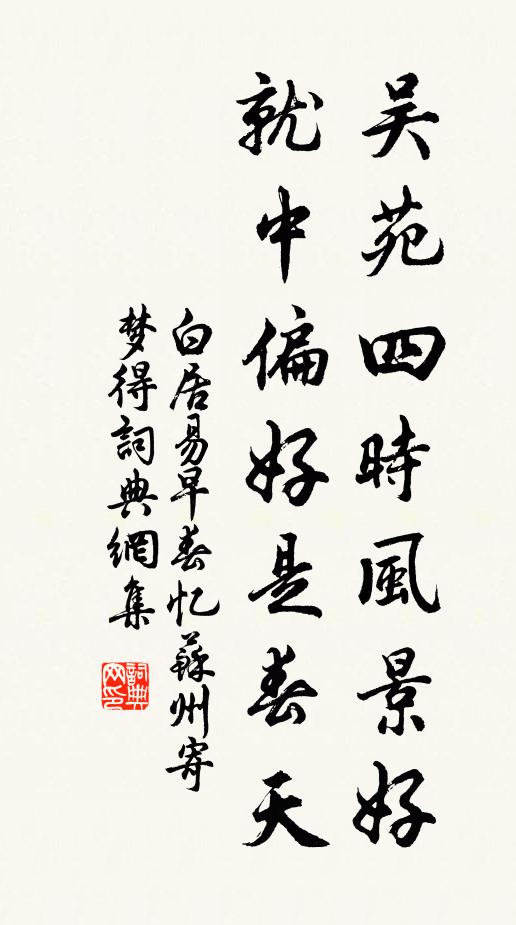 吴苑四時風景好
就中偏好是春天
白居易早春忆蘇州寄
梦得詞典網集
詞典网印